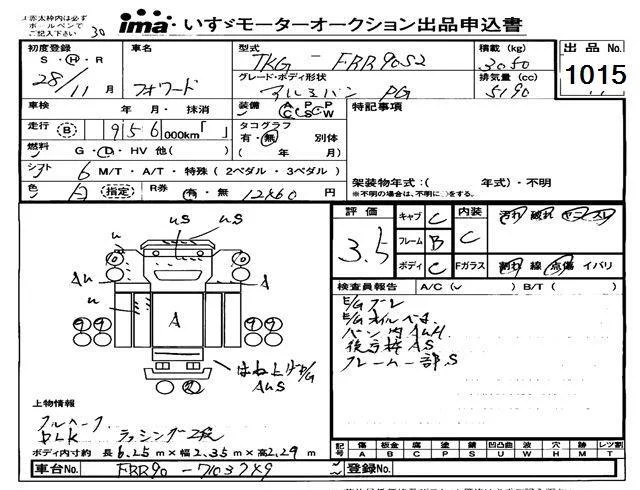 赤太枠内は必ず
ボールペンで
ご記入下さい
30
ima いすゞモーターオークション出品申込書
初度登録 S・H・R 28/11月
車名 フォワード
型式 TKG-FRR90S2
グレード・ボディ形状 アルミバン PG
積載(kg) 3050
排気量(cc) 5190
出品No. 1015
車検 年 月・抹消
装備 A/C P/S P/W
特記事項
走行 B 956,000km「 」
タコグラフ 有・無 別体 ( 年 月)
燃料 G・D・HV 他( )
シフト 6 M/T・A/T・特殊(2ペダル・3ペダル)
色 白 (指定) R券 有・無 12460円
架装物年式:( 年式)・不明
※不明の場合は、不明に○をする。
評価 3.5
キャブ C
フレーム B
ボディ C
内装 C
汚れ 破れ ヤニ・スレ
Fガラス 割れ 線 点傷 イバリ
検査員報告 A/C( ) B/T( )
E/Gブレ
E/Gオイルベタ
バン内AUH
後方枠AS
フレーム一部S
u us us
u
AU A
u A
はね上げP/G
AUS
上物情報
フルハーフ
DLK ラッシング二段
ボディ内寸約 長6.25m×幅2.35m×高2.29m
記号 傷A 板金B 腐C 塗P 錆S 凹凸曲U 波W 穴H 跡M レツ割T
車台No. FRR90-7103749
登録No.